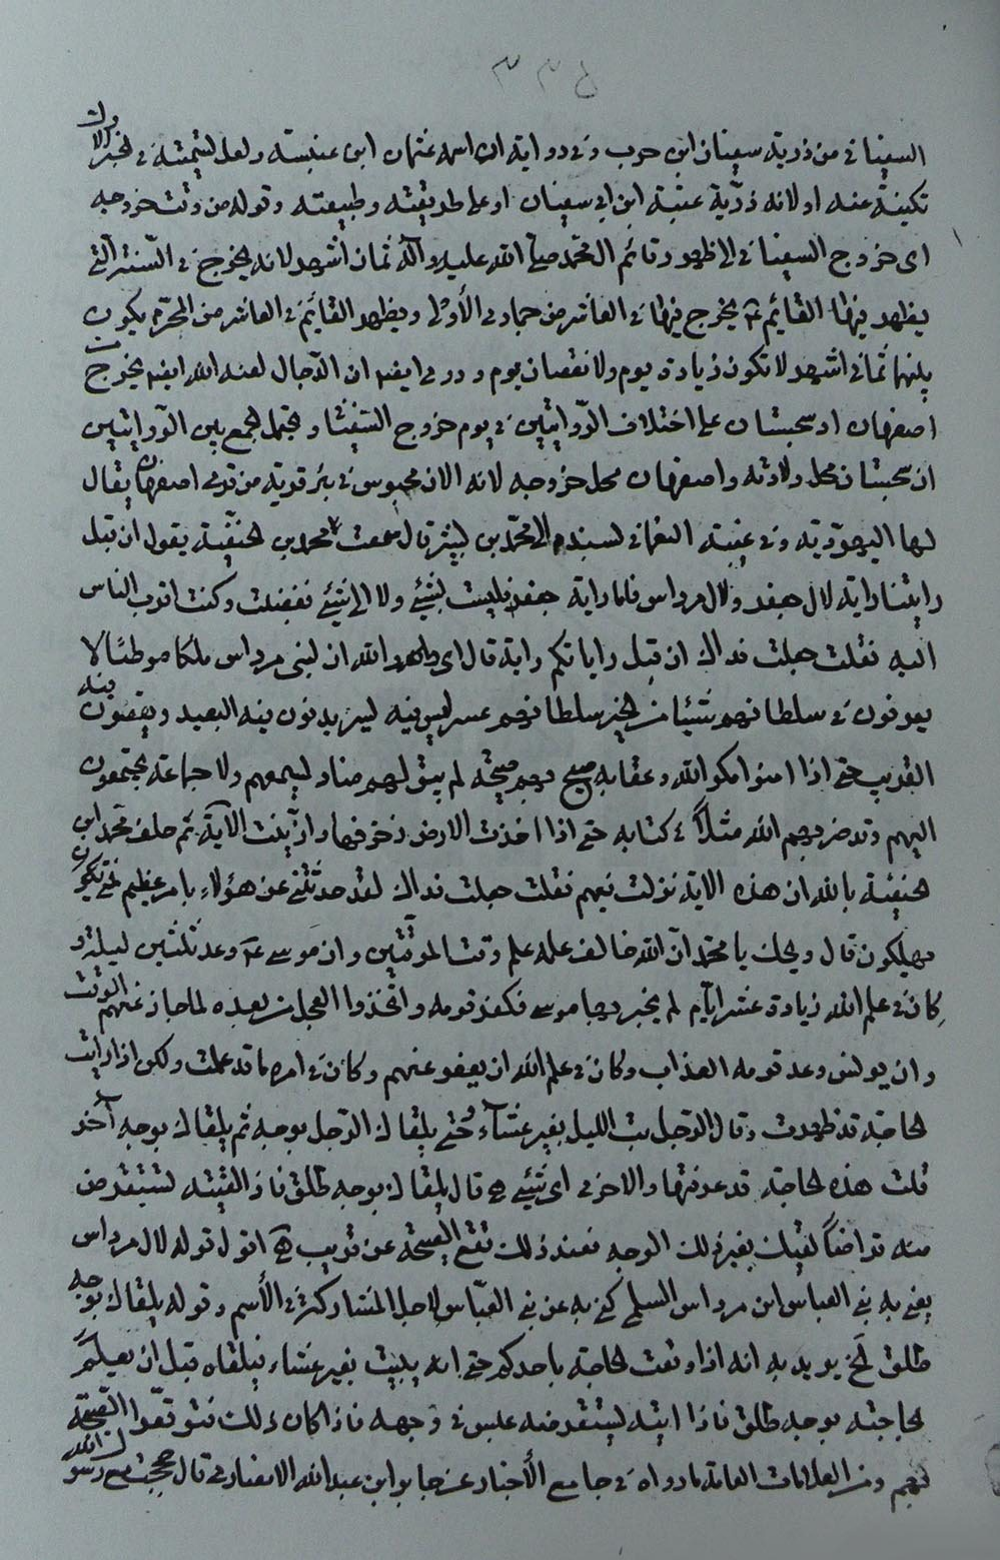 ٣٣٤
السفياني من ذرية سفيان ابن حرب وفي رواية ان اسمه عثمان ابن عنبسة ولعل تسميته في الخبر الاول
تكنية عنه او لانه ذرّية عتبة ابن ابي سفيان او على طريقته وطبيعته وقوله من وقت خروجه
اى خروج السفياني الى ظهور قائم ال محمد صلى الله عليه وآله ثمان اشهر لانه يخرج في السنة التي
يظهر فيها القائم ع يخرج فيها في العاشر من جمادى الأولى ويظهر القائم في العاشر من المحرم يكون
بينهما ثماني اشهر لا تكون زيادة يوم ولا نقصان يوم وروى ايضا ان الدّجال لعنه الله ايضا يخرج من
اصفهان او سجستان على اختلاف الرّوايتين في يوم خروج السفياني ويحتمل الجمع بين الرّوايتين
ان سجستان محل ولادته واصفهان محل خروجه لانه الان محبوس في بئر قرية من قرى اصفهان يقال
لها اليهوديّة وفي غيبة النعماني بسنده الى محمّد بن بشر قال سمعت محمد بن الحنفيّة يقول ان قبل
راياتنا راية لال جعفر ولال مرداس فاما راية جعفر فليست بشيئ ولا الى شيئ فغضبت وكنت اقرب الناس
اليه فقلت جعلت فداك ان قبل راياتكم راية قال اى والله ان لبنى مرداس ملكا موطئا لا
يعرفون في سلطانهم شيئا من الخير سلطانهم عسر ليس فيه يسر يدنون فيه البعيد ويقصون فيه
القريب حتى اذا امنوا مكر الله وعقابه صيح بهم صيحة لم يبق لهم مناد يسمعهم ولا جماعة يجتمعون
اليهم وقد ضربهم الله مثلاً في كتابه حتى اذا اخذت الارض زخرفها وازّينت الآية ثم حلف محمد ابن
الحنفية بالله ان هذه الاية نزلت فيهم فقلت جعلت فداك لقد حدثتني عن هؤلاء بامر عظيم فمتى يكون
يهلكون قال ويحك يا محمّد انّ الله خالف علمه علم وقت الموقّتين وان موسى ع وعد ثلثين ليلة و
كان في علم الله زيادة عشر ايّام لم يخبر بها موسى فكفر قومه واتّخذوا العجل من بعده لما جاز عنهم الوقت
وان يونس وعد قومه العذاب وكان في علم الله ان يعفو عنهم وكان في امره ما قد علمت ولكن اذا رايت
الحاجة قد ظهرت وقال الرجل بت الليل بغير عشاء وحتى يلقاك الرجل بوجه ثم يلقاك بوجه آخر
قلت هذه الحاجة قد عرفتها والاخرى اى شيئ هي قال يلقاك بوجه طلق فاذا اتيته تستقرض
منه قراضاً لقيك بغير ذلك الوجه فعند ذلك تقع الصيحة عن قريب اقول قوله لال مرداس
يعني به بني العباس ابن مرداس السلمي كني به عن بني العبّاس لاجل المشاركة في الأسم وقوله يلقاك بوجه
طلق الخ يريد به انه اذا وقعت الحاجة باحدكم حتى انه يبيت بغير عشاء فيلقاه قبل ان يعلم
بحاجته بوجه طلق فاذا اتيته ليستقرضه عبس في وجهه فاذا كان ذلك فتوقّعوا الصّيحة
فيهم ومن العلامات العامة ما رواه في جامع الأخبار عن جابر ابن عبد الله الانصارى قال حججت مع رسول الله